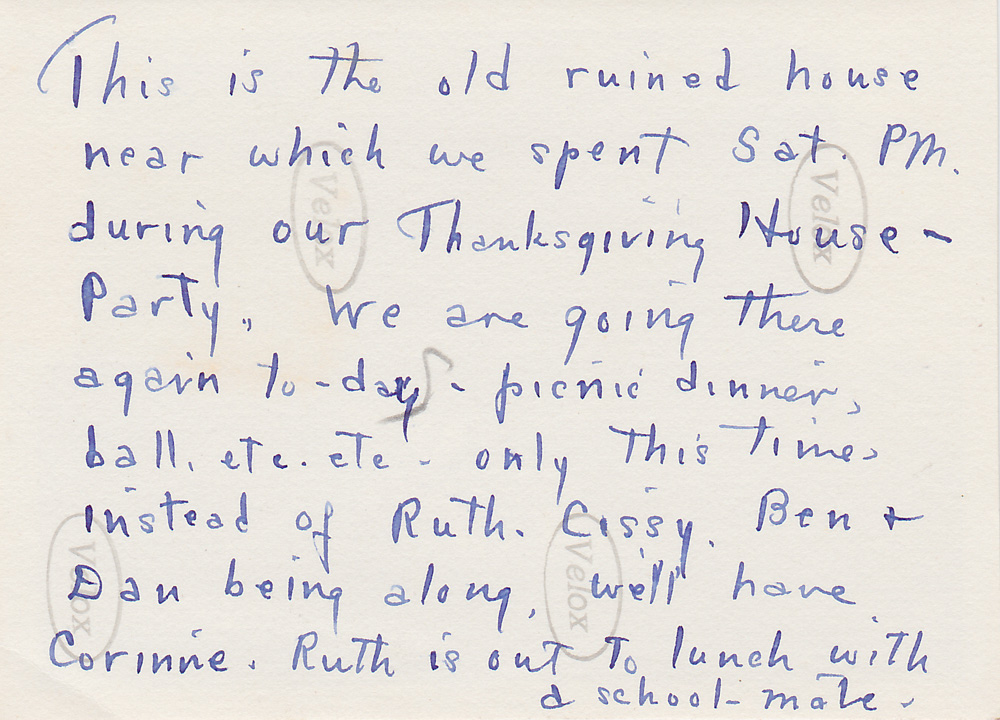 This is the old ruined house
near which we spent Sat. PM.
during our Thanksgiving House-
Party. We are going there
again to-day - picnic dinner,
ball, etc. etc - only this time,
instead of Ruth, Cissy, Ben +
Dan being along, we'll have
Corinne. Ruth is out to lunch with
a school-mate.
Velox
Velox
Velox
Velox